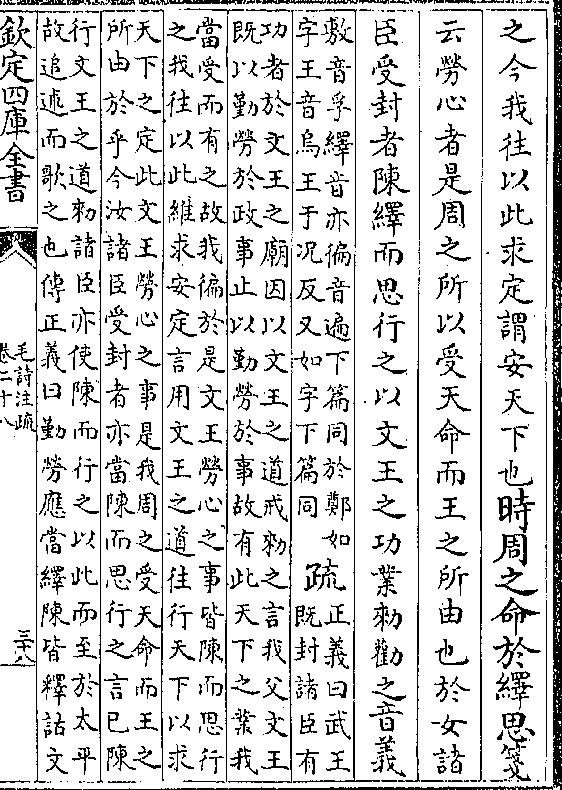 之今我往以此求定謂安天下也時周之命於繹思箋
云勞心者是周之所以受天命而王之所由也於女諸
臣受封者陳繹而思行之以文王之功業勑勸之音義
敷音孚繹音亦徧音遍下篇同於鄭如
字王音烏王于况反又如字下篇同
疏
正義曰武王
既封諸臣有
功者於文王之廟因以文王之道戒勑之言我父文王
既以勤勞於政事止以勤勞於事故有此天下之業我
當受而有之故我徧於是文王勞心之事皆陳而思行
之我往以此維求安定言用文王之道往行天下以求
天下之定此文王勞心之事是我周之受天命而王之
所由於乎今汝諸臣受封者亦當陳而思行之言已陳
行文王之道勑諸臣亦使陳而行之以此而至於太平
故追述而歌之也傳正義曰勤勞應當繹陳皆釋詁文
欽定四庫全書
毛詩注疏
卷二十八
三十八